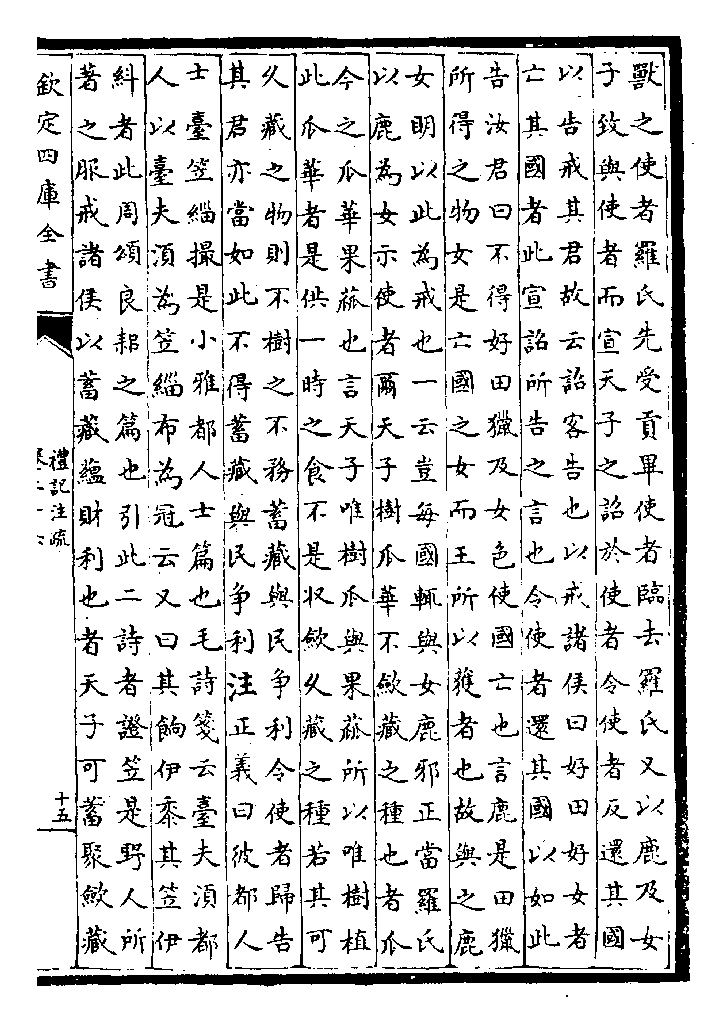 獸之使者羅氏先受貢畢使者臨去羅氏又以鹿及女
子致與使者而宣天子之詔於使者令使者反還其國
以告戒其君故云詔客告也以戒諸侯曰好田好女者
亡其國者此宣詔所告之言也令使者還其國以如此
告汝君曰不得好田獵及女色使國亡也言鹿是田獵
所得之物女是亡國之女而王所以獲者也故與之鹿
女明以此為戒也一云豈每國輒與女鹿邪正當羅氏
以鹿為女示使者爾天子樹瓜華不斂藏之種也者瓜
今之瓜華果蓏也言天子唯樹瓜與果蓏所以唯樹植
此瓜華者是供一時之食不是収斂久藏之種若其可
久藏之物則不樹之不務蓄藏與民争利令使者歸告
其君亦當如此不得蓄藏與民争利注正義曰彼都人
士臺笠緇撮是小雅都人士篇也毛詩箋云臺夫湏都
人以臺夫湏為笠緇布為冠云又曰其餉伊黍其笠伊
糾者此周頌良耜之篇也引此二詩者證笠是野人所
著之服戒諸侯以蓄藏蘊財利也者天子可蓄聚斂藏
欽定四庫全書
禮記注疏
十五